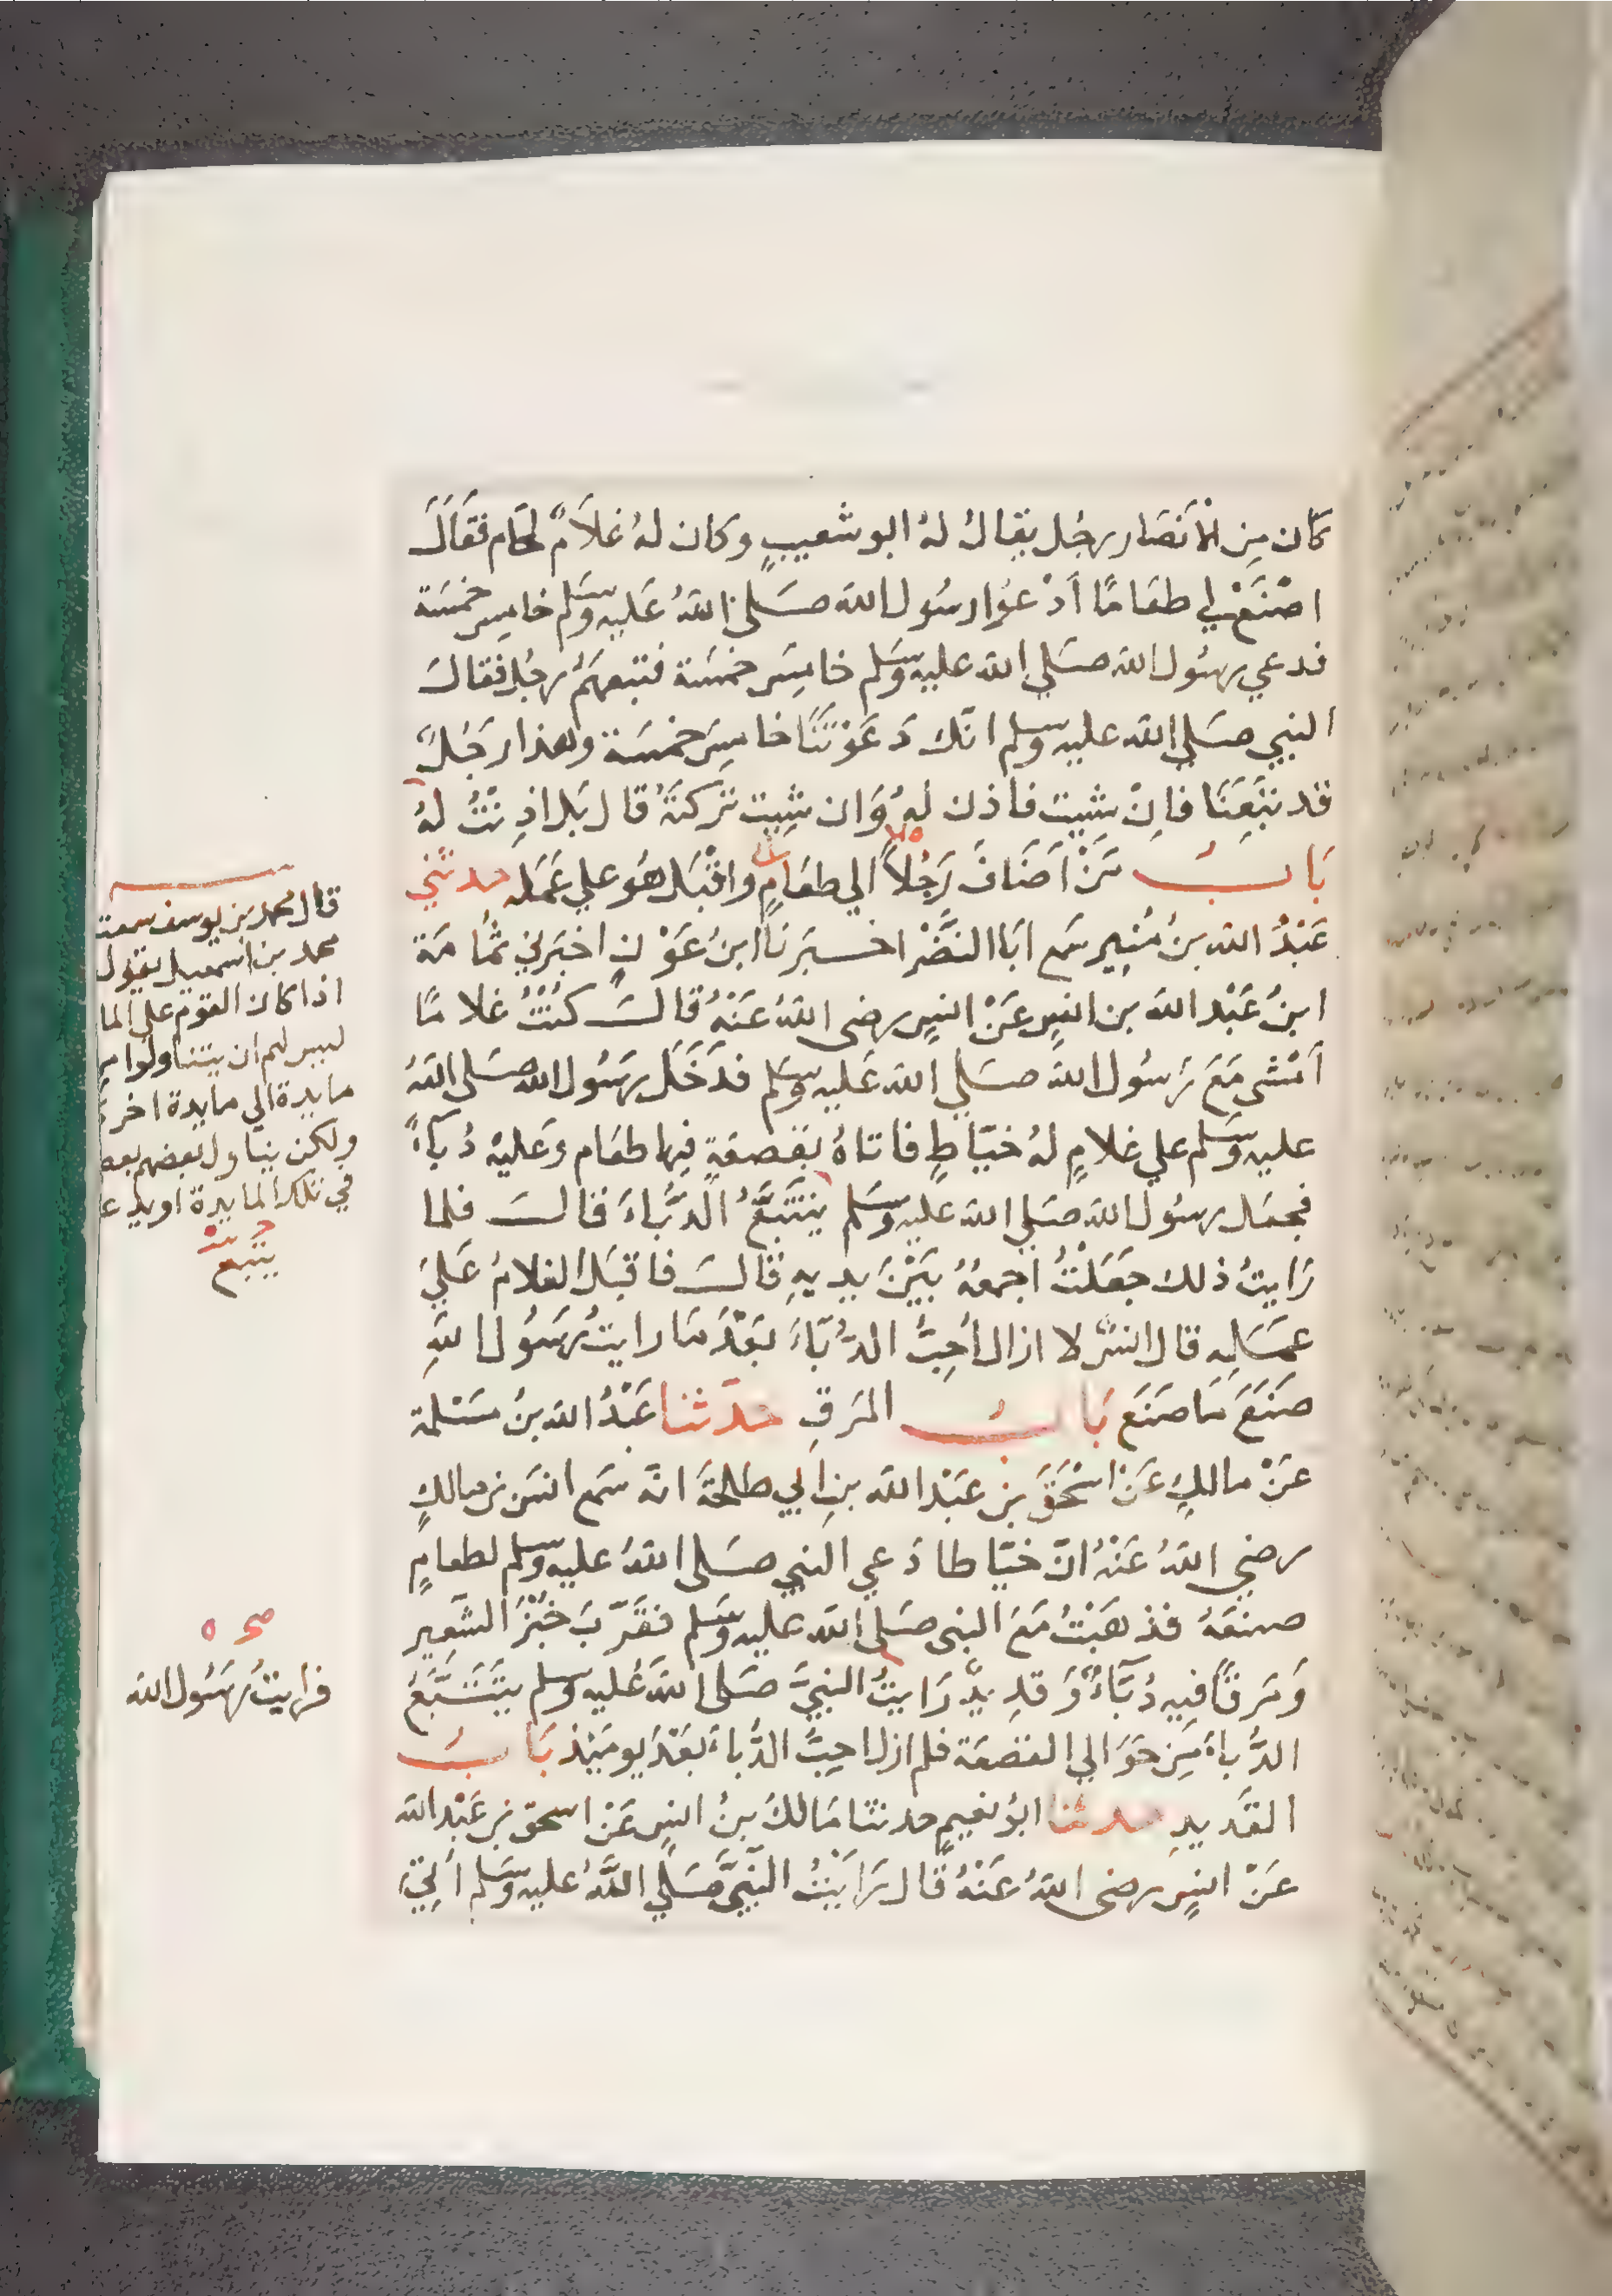 كَان مِنَ الْأَنصَار رجُل يقالُ لهُ ابو شعيبٍ وكان لهُ غلَامٌ لحَام فقَالَ
اصْنَعْ لي طعَامًا أدْعُوا رسُول الله صَلى اللهُ عَليه وسَلم خامِس خمسَة
فدعي رسُول الله صَلي الله عليه وسَلم خامِسَ خمسَة فتبعهَمُ رجُل فقالَ
النبي صَلي الله عليه وسلم انّك دَعَوْتنَا خامِسَ خمسَة وهذا رَجُلٌ
قد تبَعِنَا فاِنْ شِيت فاذن لهُ وَان شِيت تَركتَهُ قال بَل اذِنْتُ لهُ
بَابُ مَنْ اَضَافَ رَجُلًا الي طعَامٍ واقْبَل هُو علي عَمَله حدثني
عَبْدُ الله بنُ مُنِيرٍ سَمع ابَا النَّضْرَ اخبَرنَا ابنُ عَوْنٍ اخبَرني ثُمامَة
ابنُ عَبْد الله بن انسٍ عَنْ انسٍ رضى اللهُ عَنْهُ قالَ كنُتُ غلامًا
أمْشى مَعَ رَسُول الله صَلي الله عَليه وسَلم فدَخَل رسُول الله صَلى اللهُ
عليه وسَلم علي غلامٍ لهُ خيّاطٍ فاتاهُ بقصعَةٍ فِيها طعَام وعَليْه دُبآءٌ
فجعَل رسُول الله صَلي الله عليه وسَلم يَتَتَبَّعُ الدُّبَّاءَ قالَ فلما
رَايتُ ذلك جعَلْتُ اجمعُهُ بَيْنَ يديهِ قالَ فاقبَل الغلامُ عَليَ
عمَلِه قال انسٌ لا ازال أُحِبُّ الدُّبَّاءَ بَعْدَ مَا رايتُ رسَوُل اللهِ
صَنَعَ مَا صَنَع بَابُ المَرَقِ حدَثنا عَبْدُ الله بنُ مَسْلمة
عَنْ مالكٍ عَنْ اسْحَقَ بن عَبْد الله بنِ ابي طلحَةَ انهَ سَمع انسَ بن مالكٍ
رضي اللهُ عَنْهُ انّ خيّاطا دَعي النبي صَلى اللهُ عليه وسَلم لطعامٍ
صنعَهُ فذهَبْتُ مَعَ النبى صَلى الله عليه وسَلم فقَرّبَ خُبْزَ الشَّعِيرِ
وَمَرقًا فيه دُبّآءٌ وَقدِيدٌ رَايتُ النبيَّ صَلى اللهُ عَليه وسلم يَتَتَبَّعُ
الدُّباءَ مِن حَوَالي القصْعَة فلم ازل احِبُّ الدُّباءَ بَعْدَ يومَئِذٍ بَابُ
القَديدِ حدثنا ابوُ نعيمٍ حدثنا مَالكُ بنُ انسٍ عَنْ اسحق بن عَبْد الله
عَنْ انسٍ رضى اللهُ عَنْهُ قَال رَايْتُ النّبيَّ صَلَي اللَّهُ عليه وسَلم أُتِيَ
قال محمد بن يوسف سمعت
محمد بن اسمعيل يقول
اذا كان القوم على الما
ليس لهم ان يتناولوا من
مايدة الي مايدة اخرى
ولكن يناول بعضهم بعضا
في تلك المايدة او يدع
يتبع
صح ه
فرايتُ رسُول الله